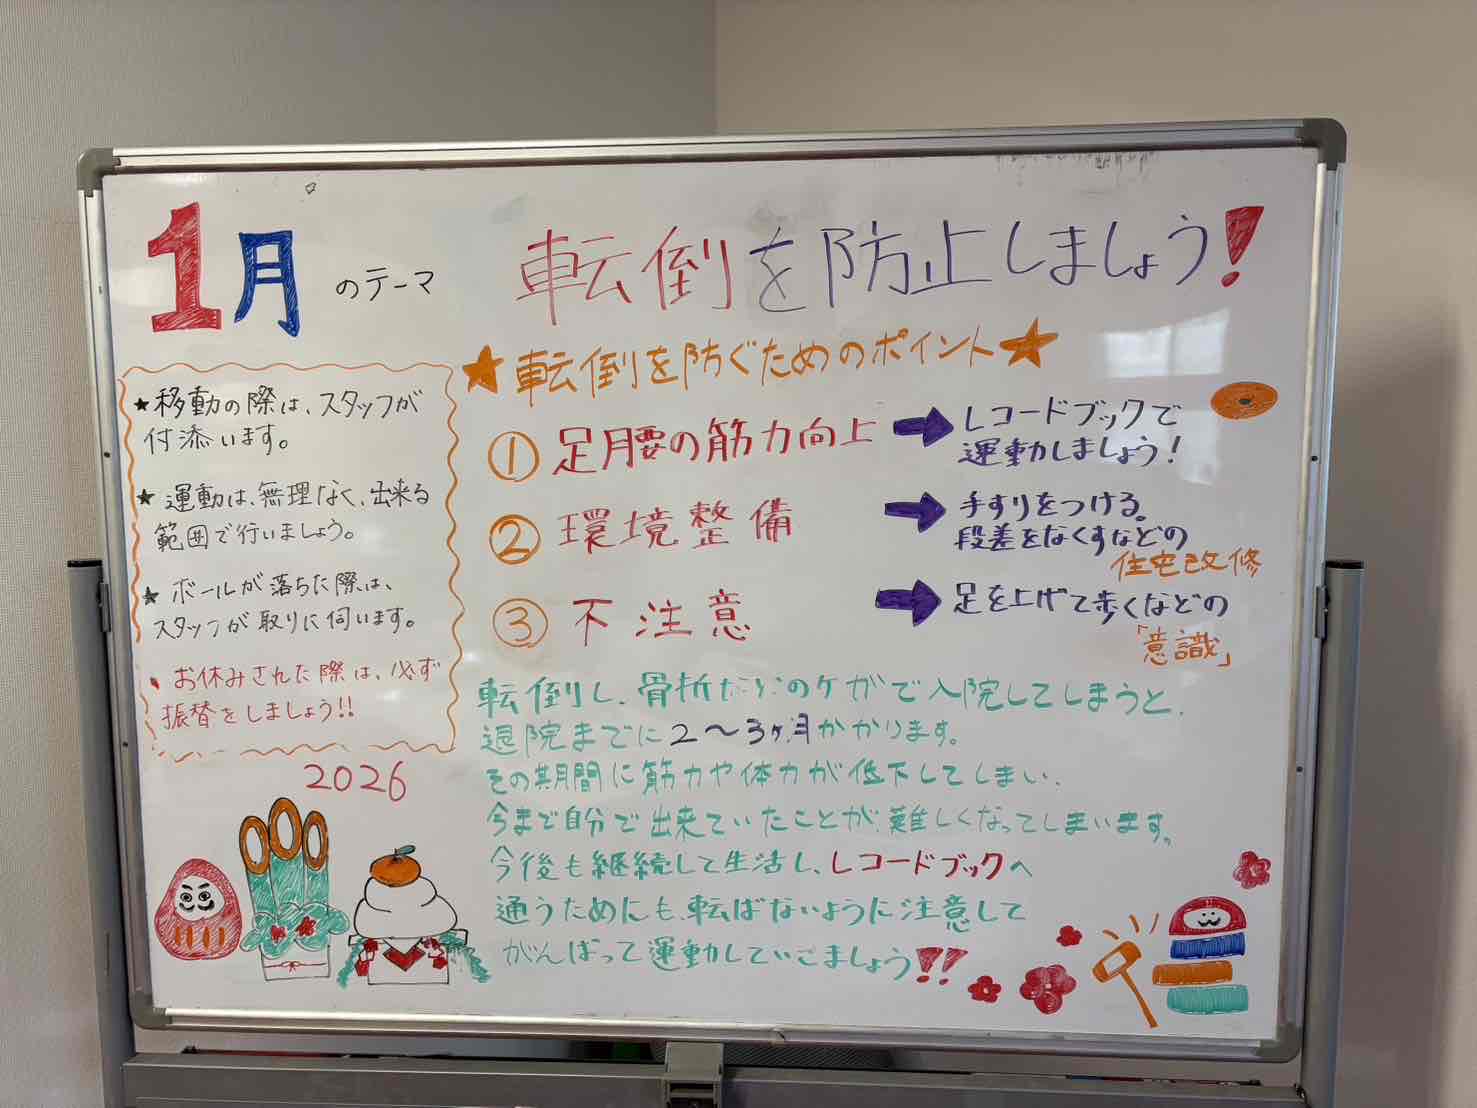 1月のテーマ 転倒を防止しましょう!
★移動の際は、スタッフが
付添います。
★運動は、無理なく、出来る
範囲で行いましょう。
★ボールが落ちた際は、
スタッフが取りに伺います。
・お休みされた際は、必ず
振替をしましょう!!
2026
★転倒を防ぐためのポイント★
①足腰の筋力向上 ➡ レコードブックで
運動しましょう!
②環境整備 ➡ 手すりをつける。
段差をなくすなどの
住宅改修
③不注意 ➡ 足を上げて歩くなどの
「意識」
転倒し、骨折などのケガで入院してしまうと、
退院までに2〜3ヶ月かかります。
その期間に筋力や体力が低下してしまい、
今まで自分で出来ていたことが、難しくなってしまいます。
今後も継続して生活し、レコードブックへ
通うためにも、転ばないように注意して
がんばって運動していこましょう!!